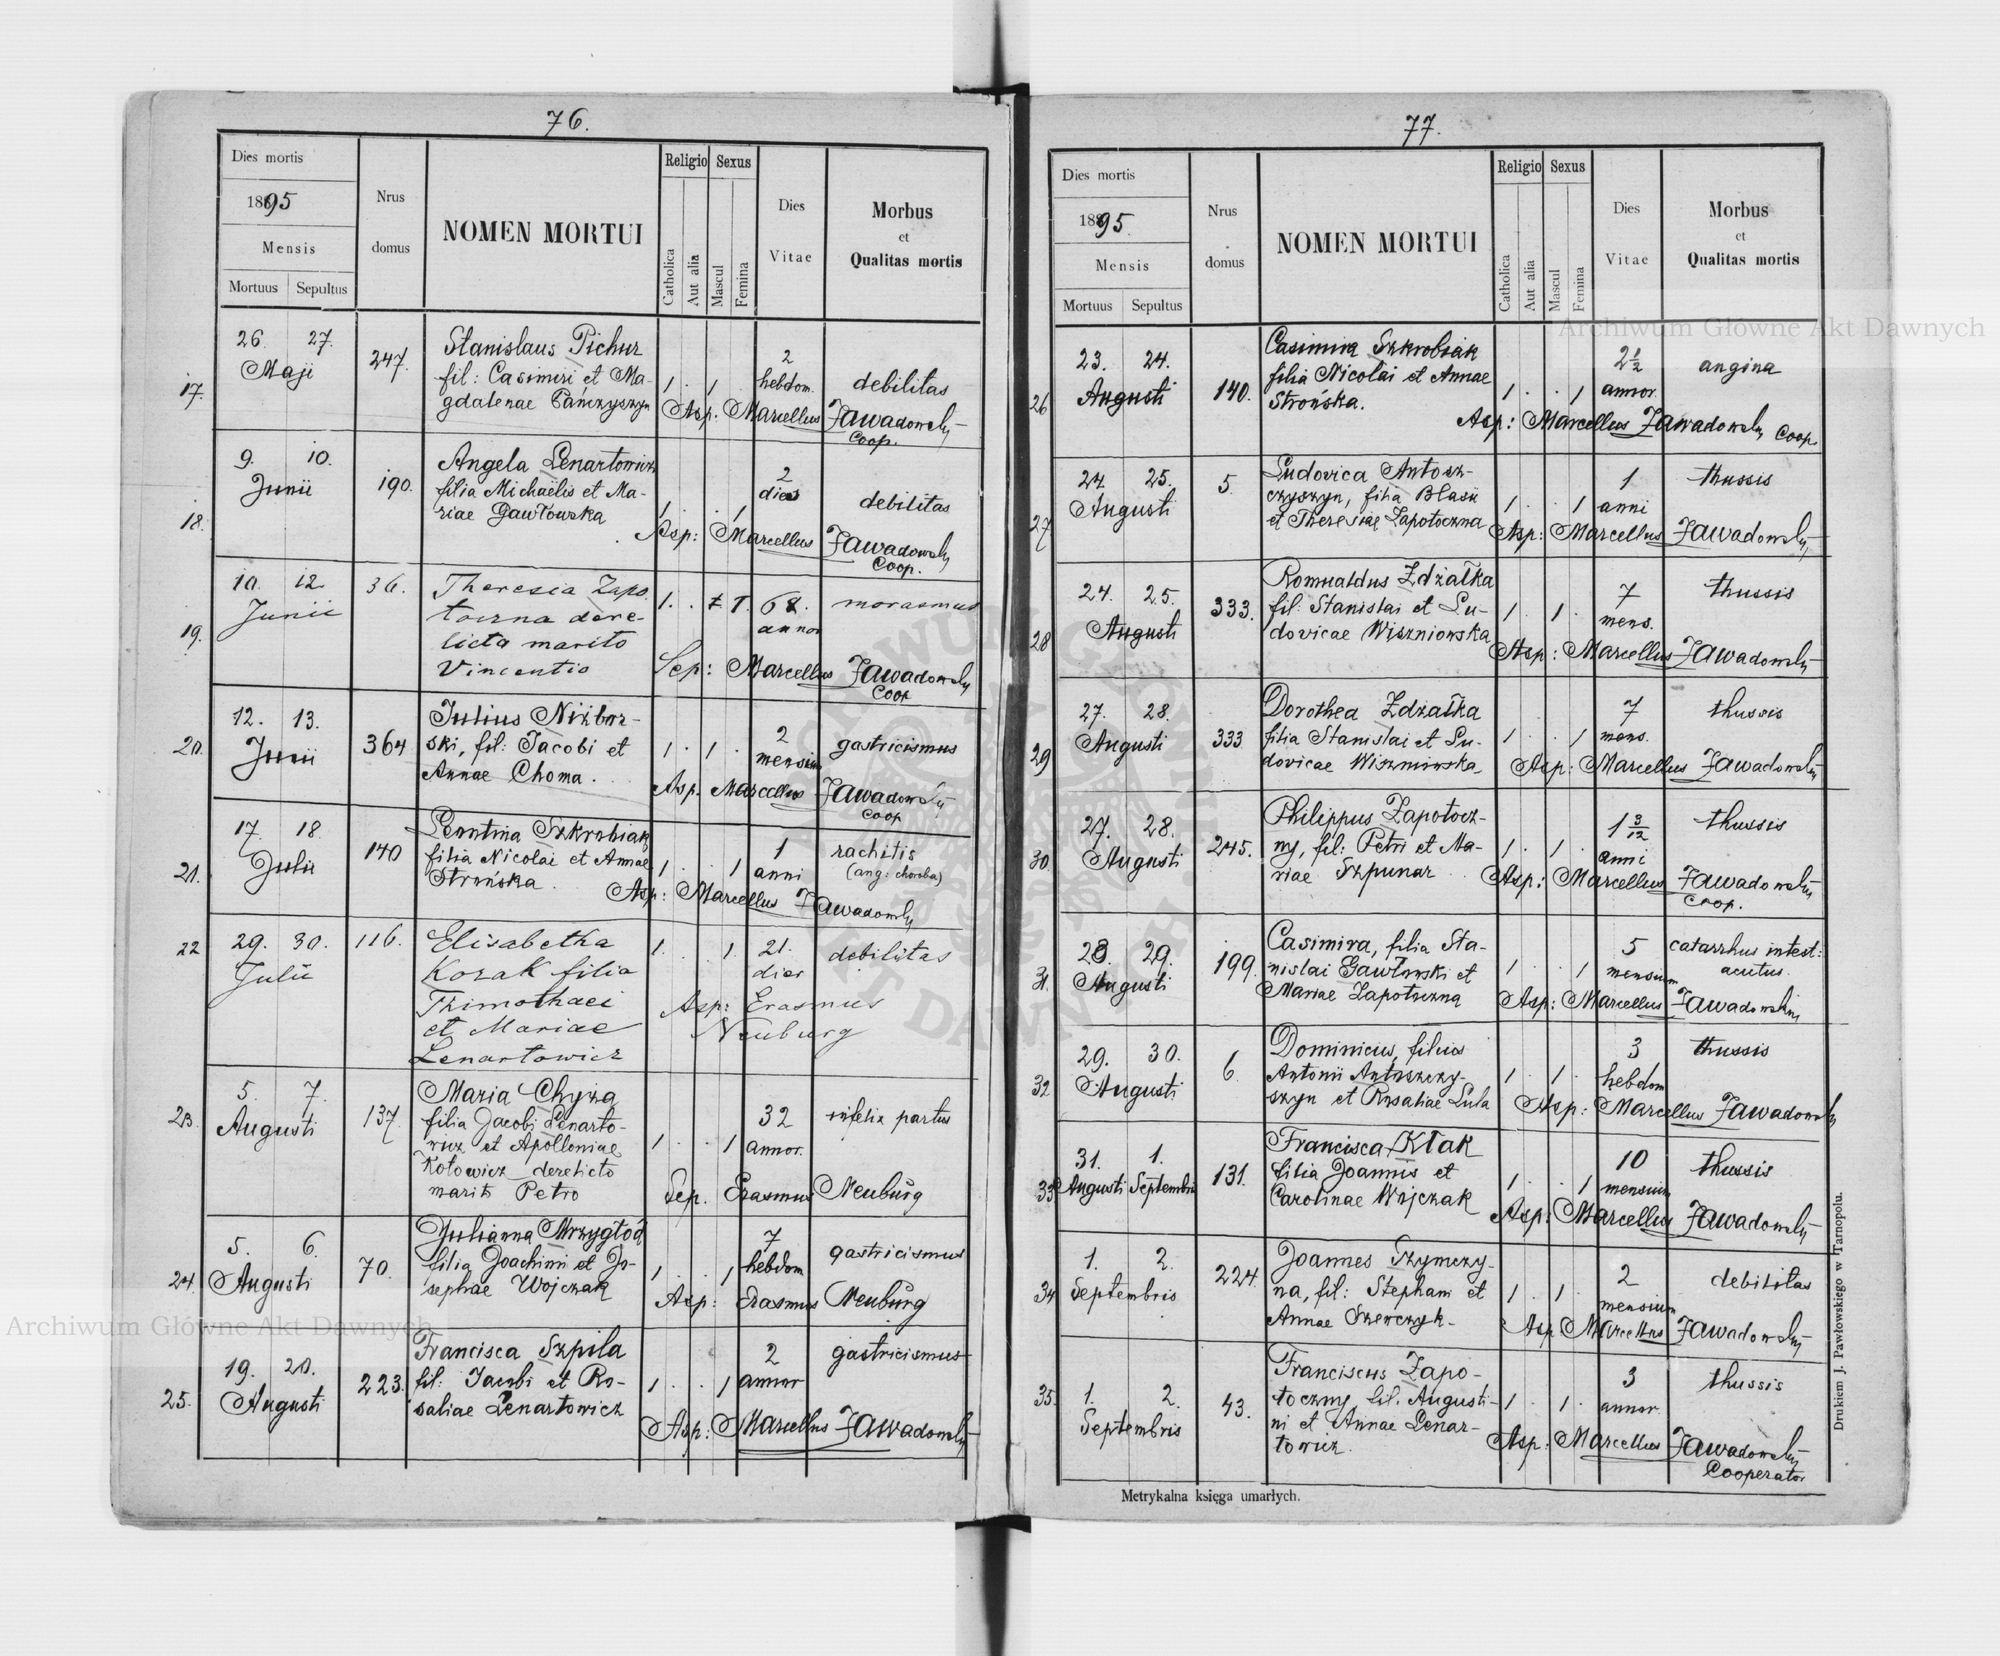 76.
Dies mortis
1895
Mensis
Mortuus Sepultus
Nrus
domus
NOMEN MORTUI
Religio
Catholica
Aut alia
Sexus
Mascul
Femina
Dies
Vitae
Morbus
et
Qualitas mortis
17.
26. 27.
Maji
247.
Stanislaus Pichur
fil: Casimiri et Ma-
gdalenae Pańczyszyn
1 . 1 .
2
hebdom.
debilitas
Asp: Marcellus Zawadowski
Coop.
18.
9. 10.
Junii
190.
Angela Lenartowicz
filia Michaëlis et Ma-
riae Gawłowska
1 . . 1
2
dies
debilitas
Asp: Marcellus Zawadowski
Coop.
19.
10. 12.
Junii
36.
Theresia Zapo
toczna dere-
licta marito
Vincentio
1. . 1.
68.
annor
morasmus
Sep: Marcellus Zawadowski
Coop
20.
12. 13.
Junii
364
Julius Niżbor-
ski, fil: Jacobi et
Annae Choma.
1 . 1 .
2
mensium
gastricismus
Asp. Marcellus Zawadowski
Coop
21.
17. 18.
Julii
140
Leontina Szkrobiak
filia Nicolai et Annae
Strońska.
1 . . 1
1
anni
rachitis
(ang: choroba)
Asp: Marcellus Zawadowski
22
29. 30.
Julii
116.
Elisabetha
Kozak filia
Tzimothaei
et Mariae
Lenartowicz
1. . . 1.
21.
dier
debilitas
Asp: Erasmus
Neuburg
23.
5. 7.
Augusti
137.
Maria Chyża
filia Jacobi Lenarto-
wicz et Apolloniae
Kotowicz derelicto
marito Petro
1 . . 1
32
annor.
infelix partus
Sep. Erasmus Neuburg
24.
5. 6.
Augusti
70.
Julianna Mrzygłód
filia Joachimi et Jo-
sephae Wojczak
1 . . 1
7
hebdom
gastricismus
Asp: Erasmus Neuburg
25.
19. 20.
Augusti
223.
Francisca Szpila
fil: Jacobi et Ro-
saliae Lenartowicz
1 . . 1
2
annor
gastricismus
Asp: Marcellus Zawadowski
77.
Dies mortis
1895.
Mensis
Mortuus Sepultus
Nrus
domus
NOMEN MORTUI
Religio
Catholica
Aut alia
Sexus
Mascul
Femina
Dies
Vitae
Morbus
et
Qualitas mortis
26
23. 24.
Augusti
140.
Casimira Szkrobiak
filia Nicolai et Annae
Strońska.
1 . . 1
2 1/2
annor.
angina
Asp: Marcellus Zawadowski Coop
27
24. 25.
Augusti
5.
Ludovica Antosz-
czyszyn, filia Blasii
et Theresiae Zapotoczna
1 . . 1
1
anni
thussis
Asp: Marcellus Zawadowski
28
24. 25.
Augusti
333.
Romualdus Zdżałka
fil: Stanislai et Lu-
dovicae Wiszniowska
1 . 1 .
7
mens.
thussis
Asp: Marcellus Zawadowski
29
27. 28.
Augusti
333.
Dorothea Zdżałka
filia Stanislai et Lu-
dovicae Wiszniowska
1 . . 1
7
mens.
thussis
Asp: Marcellus Zawadowski
30
27. 28.
Augusti
245.
Philippus Zapotocz-
ny, fil: Petri et Ma-
riae Szpunar
1 . 1 .
1 3/12
anni
thussis
Asp: Marcellus Zawadowski
Coop.
31.
28 29.
Augusti
199.
Casimira, filia Sta-
nislai Gawłowski et
Mariae Zapotoczna
1 . . 1
5
mensium
catarrhus intest:
acutus.
Asp: Marcellus Zawadowski
32
29. 30.
Augusti
6.
Dominicus, filius
Antonii Antoszczy-
szyn et Rosaliae Lula
1 . 1 .
3
hebdom
thussis
Asp: Marcellus Zawadowski
33
31. 1.
Augusti Septembris
131.
Francisca Kłak
filia Joannis et
Carolinae Wojczak
1 . . 1
10
mensium
thussis
Asp: Marcellus Zawadowski
34
1. 2.
Septembris
224.
Joannes Szymczy-
na, fil: Stephani et
Annae Szewczyk.
1 . 1 .
2
mensium
debilitas
Asp Marcellus Zawadowski
35.
1. 2.
Septembris
43.
Franciscus Zapo-
toczny, fil. Augusti-
ni et Annae Lenar-
towicz.
1 . 1 .
3
annor.
thussis
Asp: Marcellus Zawadowski
Cooperator
Metrykalna księga umarłych.
Drukiem J. Pawłowskiego w Tarnopolu.
Archiwum Główne Akt Dawnych
Archiwum Główne Akt Dawnych
ARCHIWUM GŁÓWNE AKT DAWNYCH